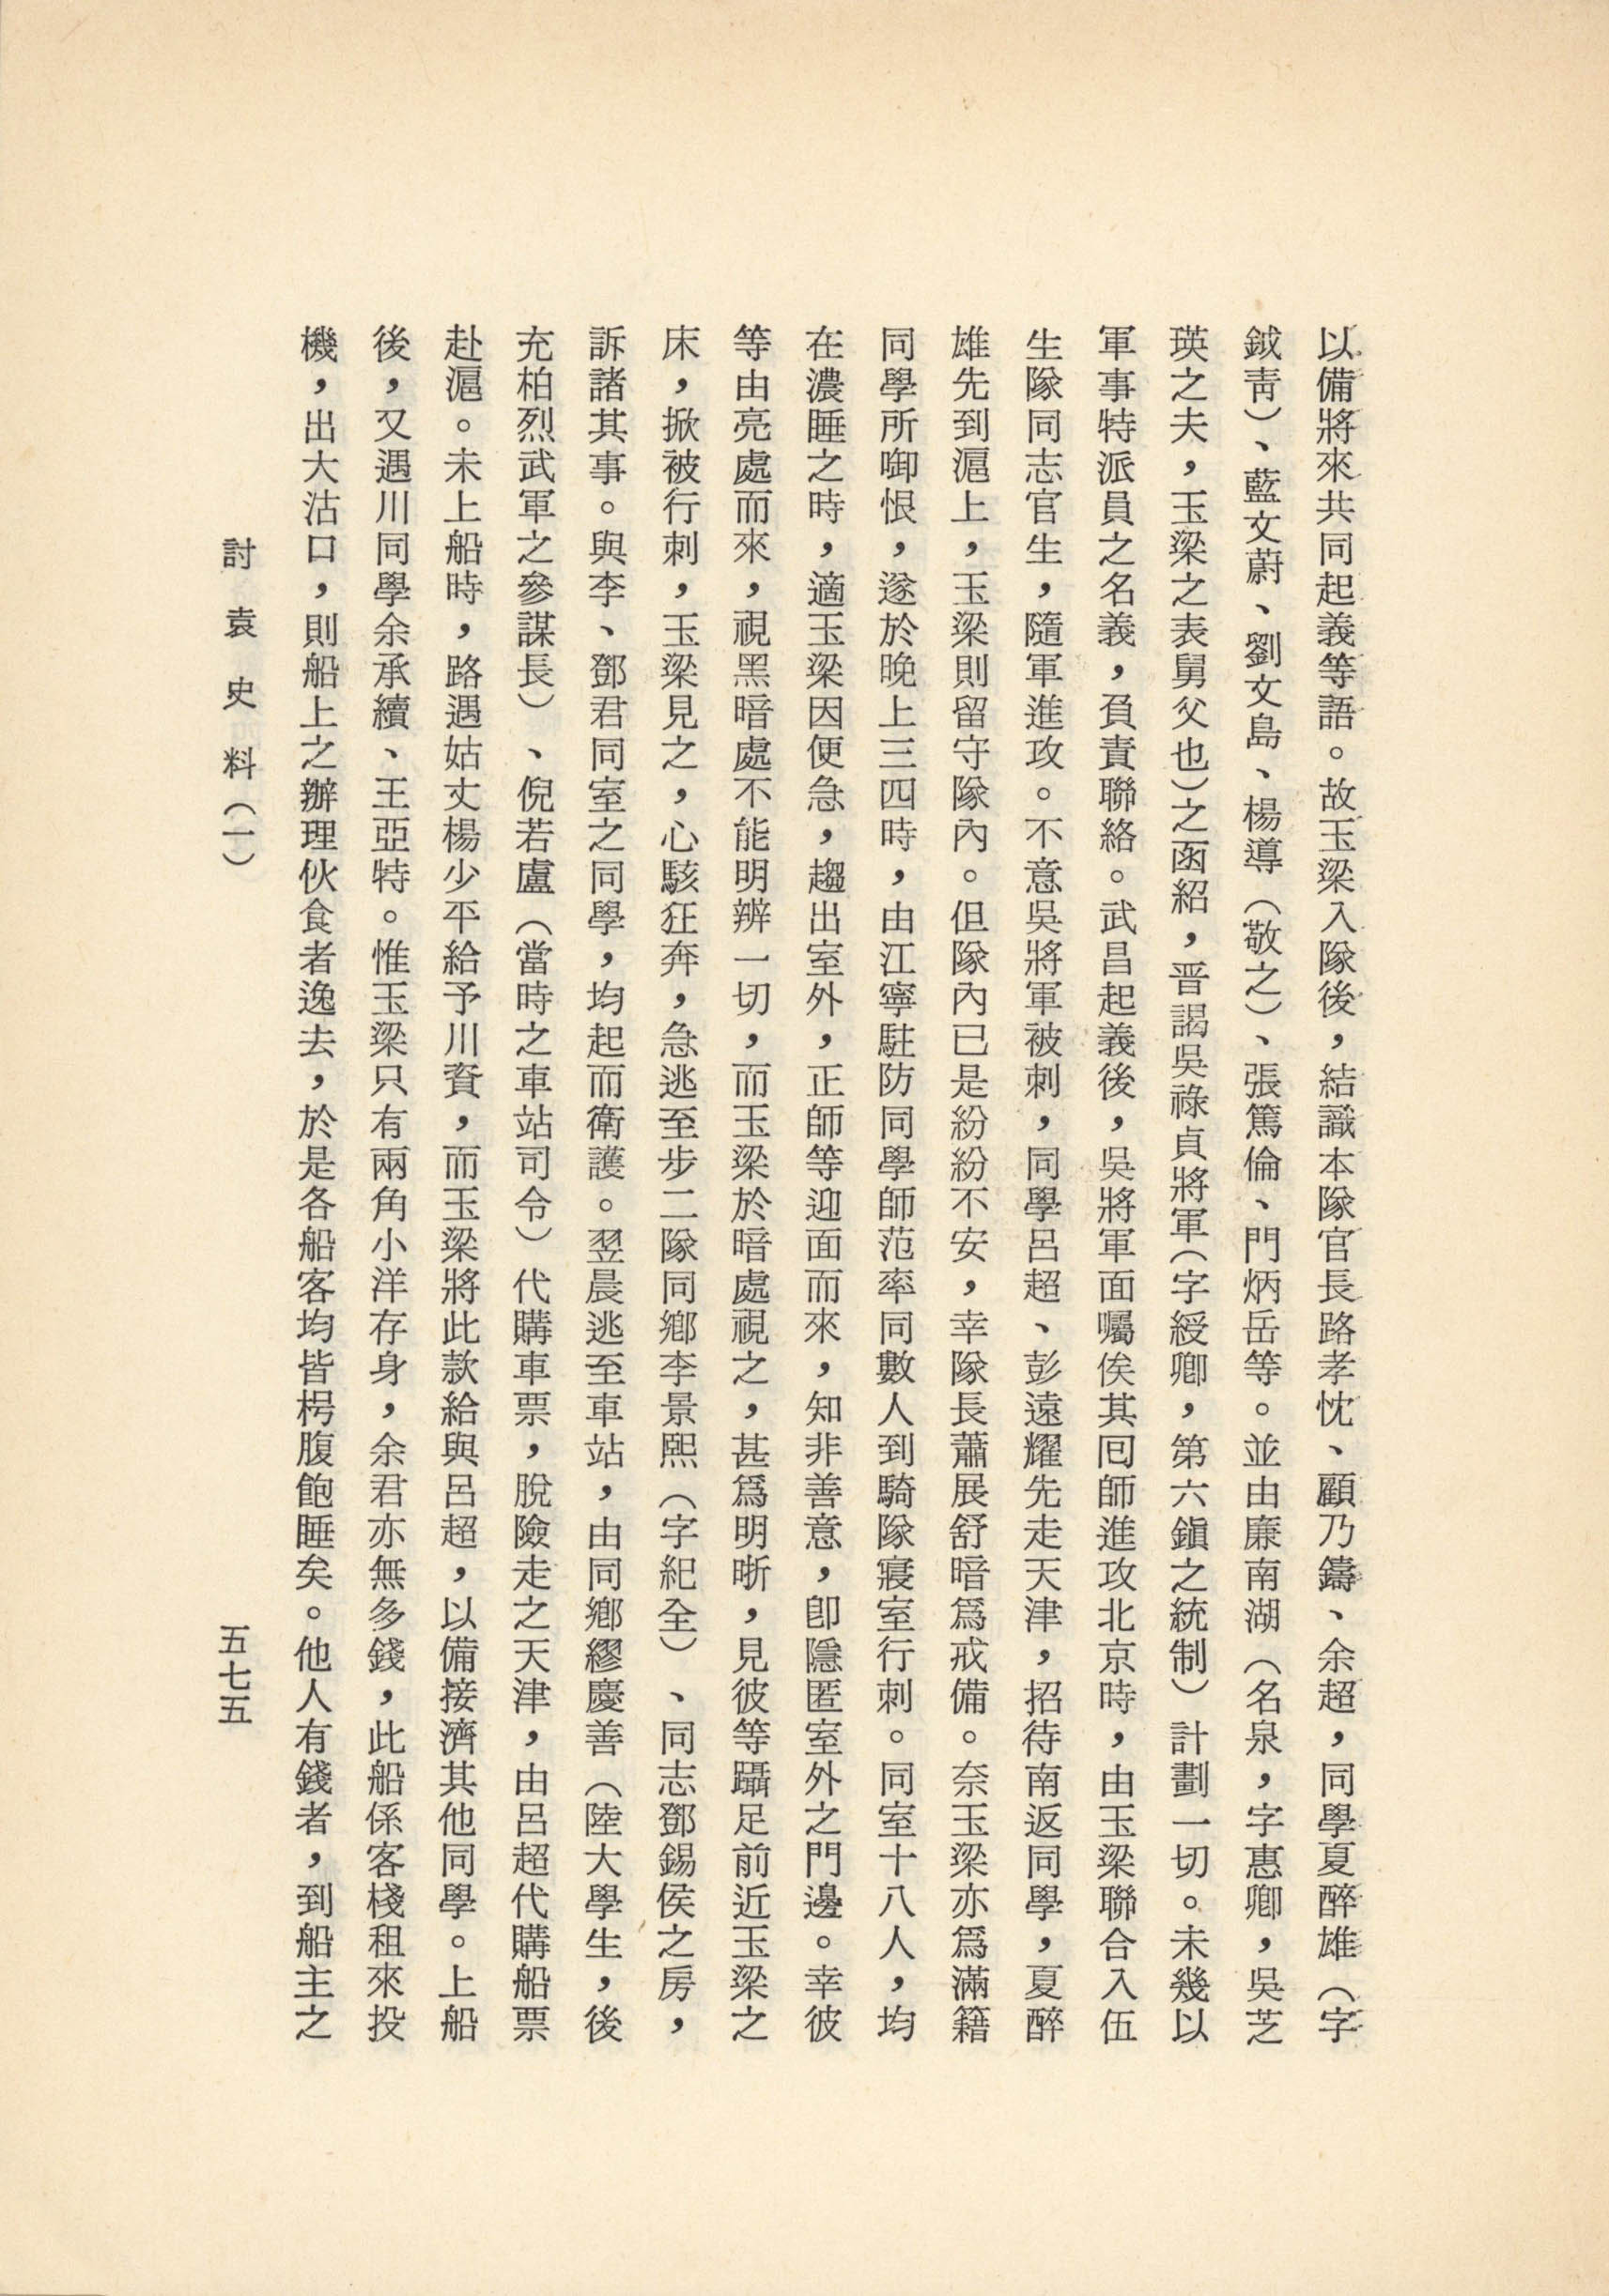 以備將來共同起義等語。故玉梁入隊後，結識本隊官長路孝忱、顧乃鑄、余超，同學夏醉雄（字
鉞靑）、藍文蔚、劉文島、楊導（敬之）、張篤倫、門炳岳等。並由廉南湖（名泉，字惠卿，吳芝
瑛之夫，玉梁之表舅父也）之函紹，晋謁吳祿貞將軍（字綬卿，第六鎭之統制）計劃一切。未幾以
軍事特派員之名義，負責聯絡。武昌起義後，吳將軍面囑俟其囘師進攻北京時，由玉梁聯合入伍
生隊同志官生，隨軍進攻。不意吳將軍被刺，同學呂超、彭遠耀先走天津，招待南返同學，夏醉
雄先到滬上，玉梁則留守隊內。但隊內已是紛紛不安，幸隊長蕭展舒暗爲戒備。奈玉梁亦爲滿籍
同學所啣恨，遂於晚上三四時，由江寧駐防同學師范率同數人到騎隊寢室行刺。同室十八人，均
在濃睡之時，適玉梁因便急，趨出室外，正師等迎面而來，知非善意，卽隱匿室外之門邊。幸彼
等由亮處而來，視黑暗處不能明辨一切，而玉梁於暗處視之，甚爲明晰，見彼等躡足前近玉梁之
床，掀被行刺，玉梁見之，心駭狂奔，急逃至步二隊同鄉李景熙（字紀全）、同志鄧錫侯之房，
訴諸其事。與李、鄧君同室之同學，均起而衛護。翌晨逃至車站，由同鄉繆慶善（陸大學生，後
充柏烈武軍之參謀長）、倪若盧（當時之車站司令）代購車票，脫險走之天津，由呂超代購船票
赴滬。未上船時，路遇姑丈楊少平給予川資，而玉梁將此款給與呂超，以備接濟其他同學。上船
後，又遇川同學余承續、王亞特。惟玉梁只有兩角小洋存身，余君亦無多錢，此船係客棧租來投
機，出大沽口，則船上之辦理伙食者逸去，於是各船客均皆枵腹飽睡矣。他人有錢者，到船主之
討袁史料（一）
五七五